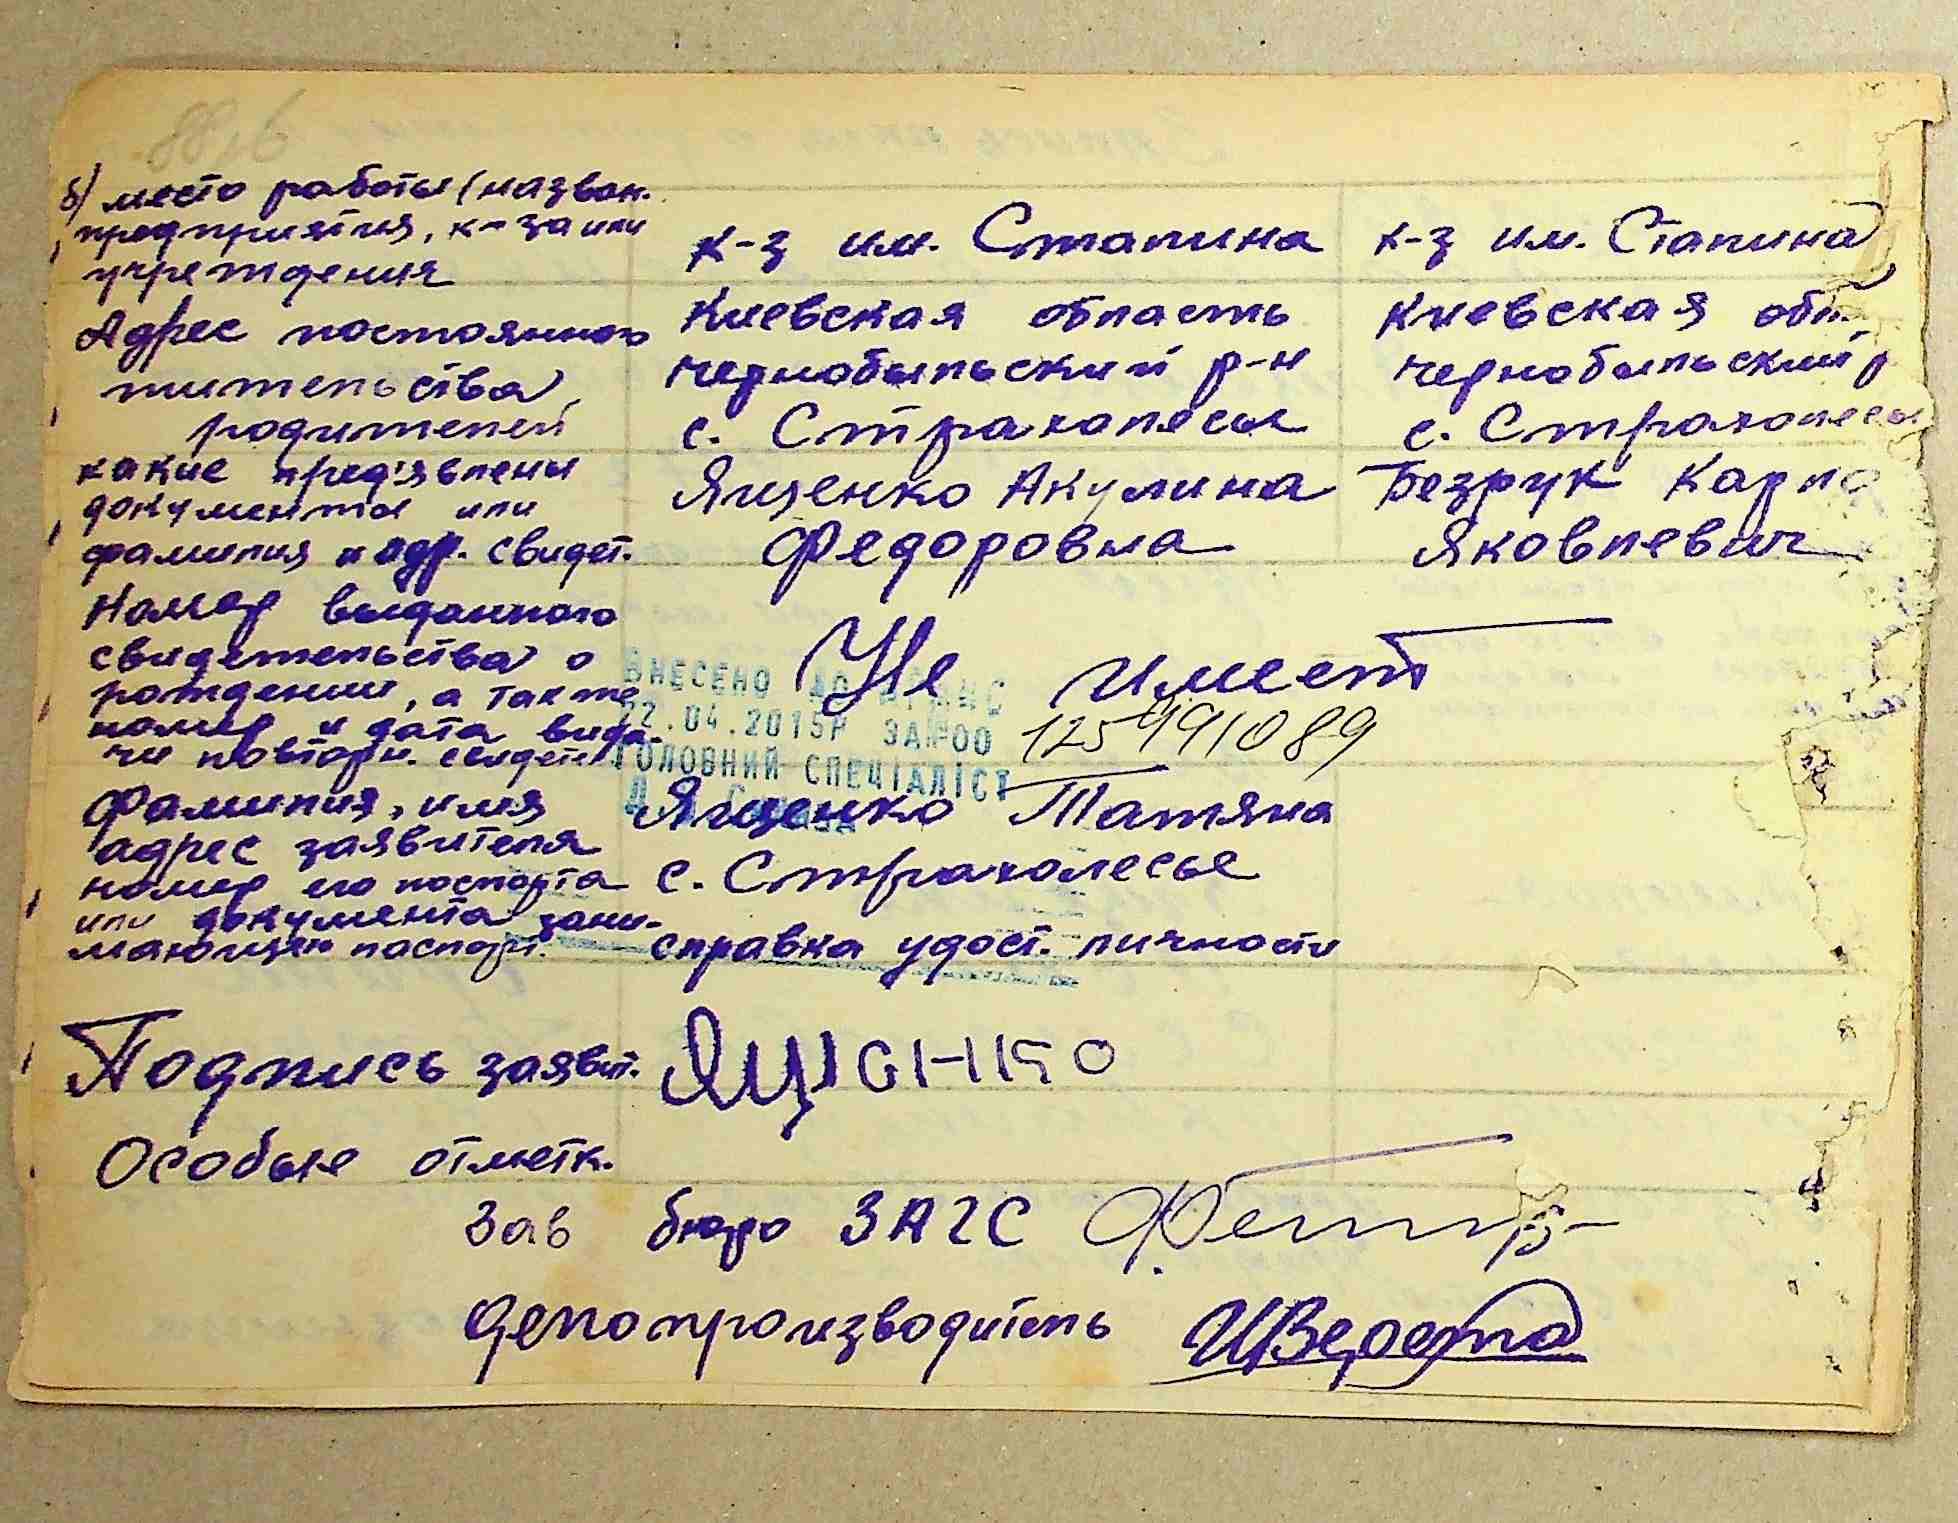 б) место работы (назван.
предприятия, к-за или
учреждения
к-з им. Сталина
к-з им. Сталина
Адрес постоянного
жительства
родителей
Киевская область
Чернобыльский р-н
с. Страхолесья
Киевская обл.
Чернобыльский р
с. Страхолесья
какие пред'явлены
документы или
фамилия и адр. свидет.
Ященко Акулина
Федоровна
Безрук Карпо
Яковлевич
Номер выданного
свидетельства о
рождении, а также
номер и дата выда-
чи повторн. свидетел
Не имеет
ВНЕСЕНО ДО ДРАЦС
22.04.2015Р ЗА№00
ГОЛОВНИЙ СПЕЦІАЛІСТ
Фамилия, имя
адрес заявителя
номер его паспорта
или документа зани-
мающего паспорт.
Ященко Татяна
с. Страхолесье
справка удост. личности
Подпись заявит. Ященко
Особые отметк.
Зав бюро ЗАГС
Делопроизводитель ИВерета